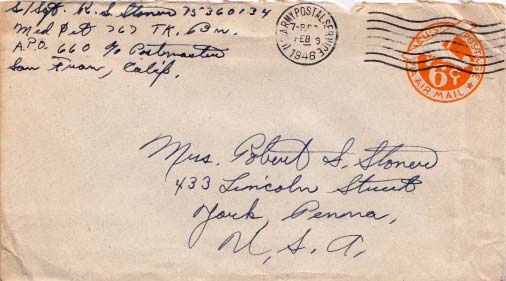 S/Sgt. R. S. Stoner 75-360134
Med Det 767 TK. Bn.
A.P.O. 660 c/o Postmaster
San Fran, Calif.
U.S. ARMY POSTAL SERVICE
FEB 3
1946
U.S. POSTAGE
6¢
VIA AIR MAIL
Mrs. Robert S. Stoner
433 Lincoln Street
York, Penna,
U. S. A.